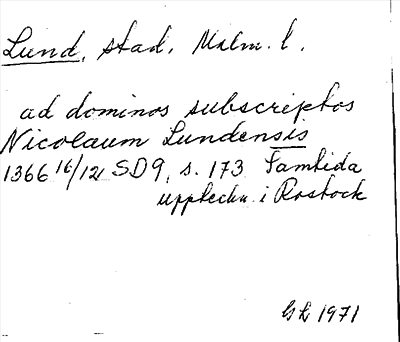 Lund, stad, Malm. l.
ad dominos subscriptos
Nicolaum Lundensis
1366 16/12 SD9, s. 173 Samtida
uppteckn. i Rostock
GL 1971